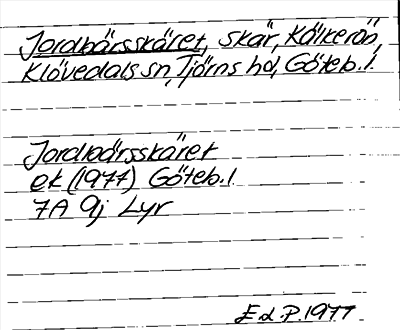 Jordbärsskäret, skär, Kålkerön,
Klövedals sn, Tjörns hd, Göteb. l.
Jordbärsskäret
ek (1977) Göteb. l
7A 9j Lyr
E d. P. 1977